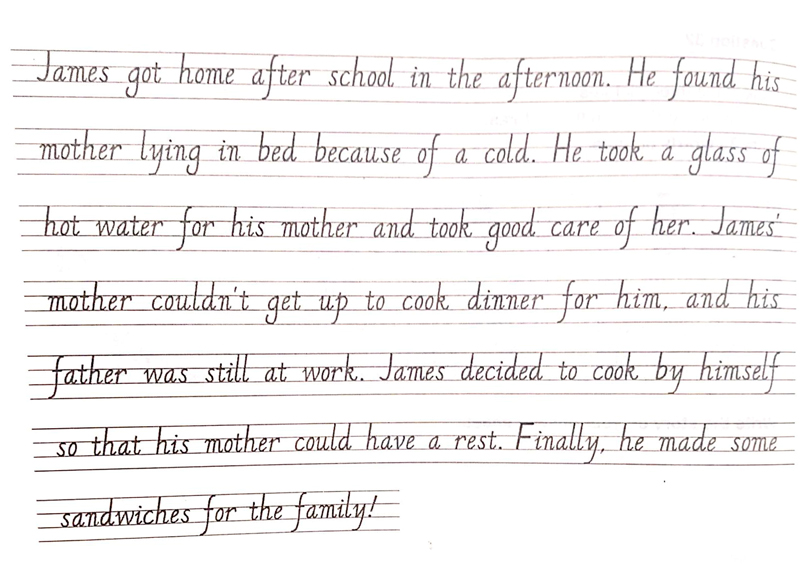 James got home after school in the afternoon. He found his
mother lying in bed because of a cold. He took a glass of
hot water for his mother and took good care of her. James'
mother couldn't get up to cook dinner for him, and his
father was still at work. James decided to cook by himself
so that his mother could have a rest. Finally, he made some
sandwiches for the family!